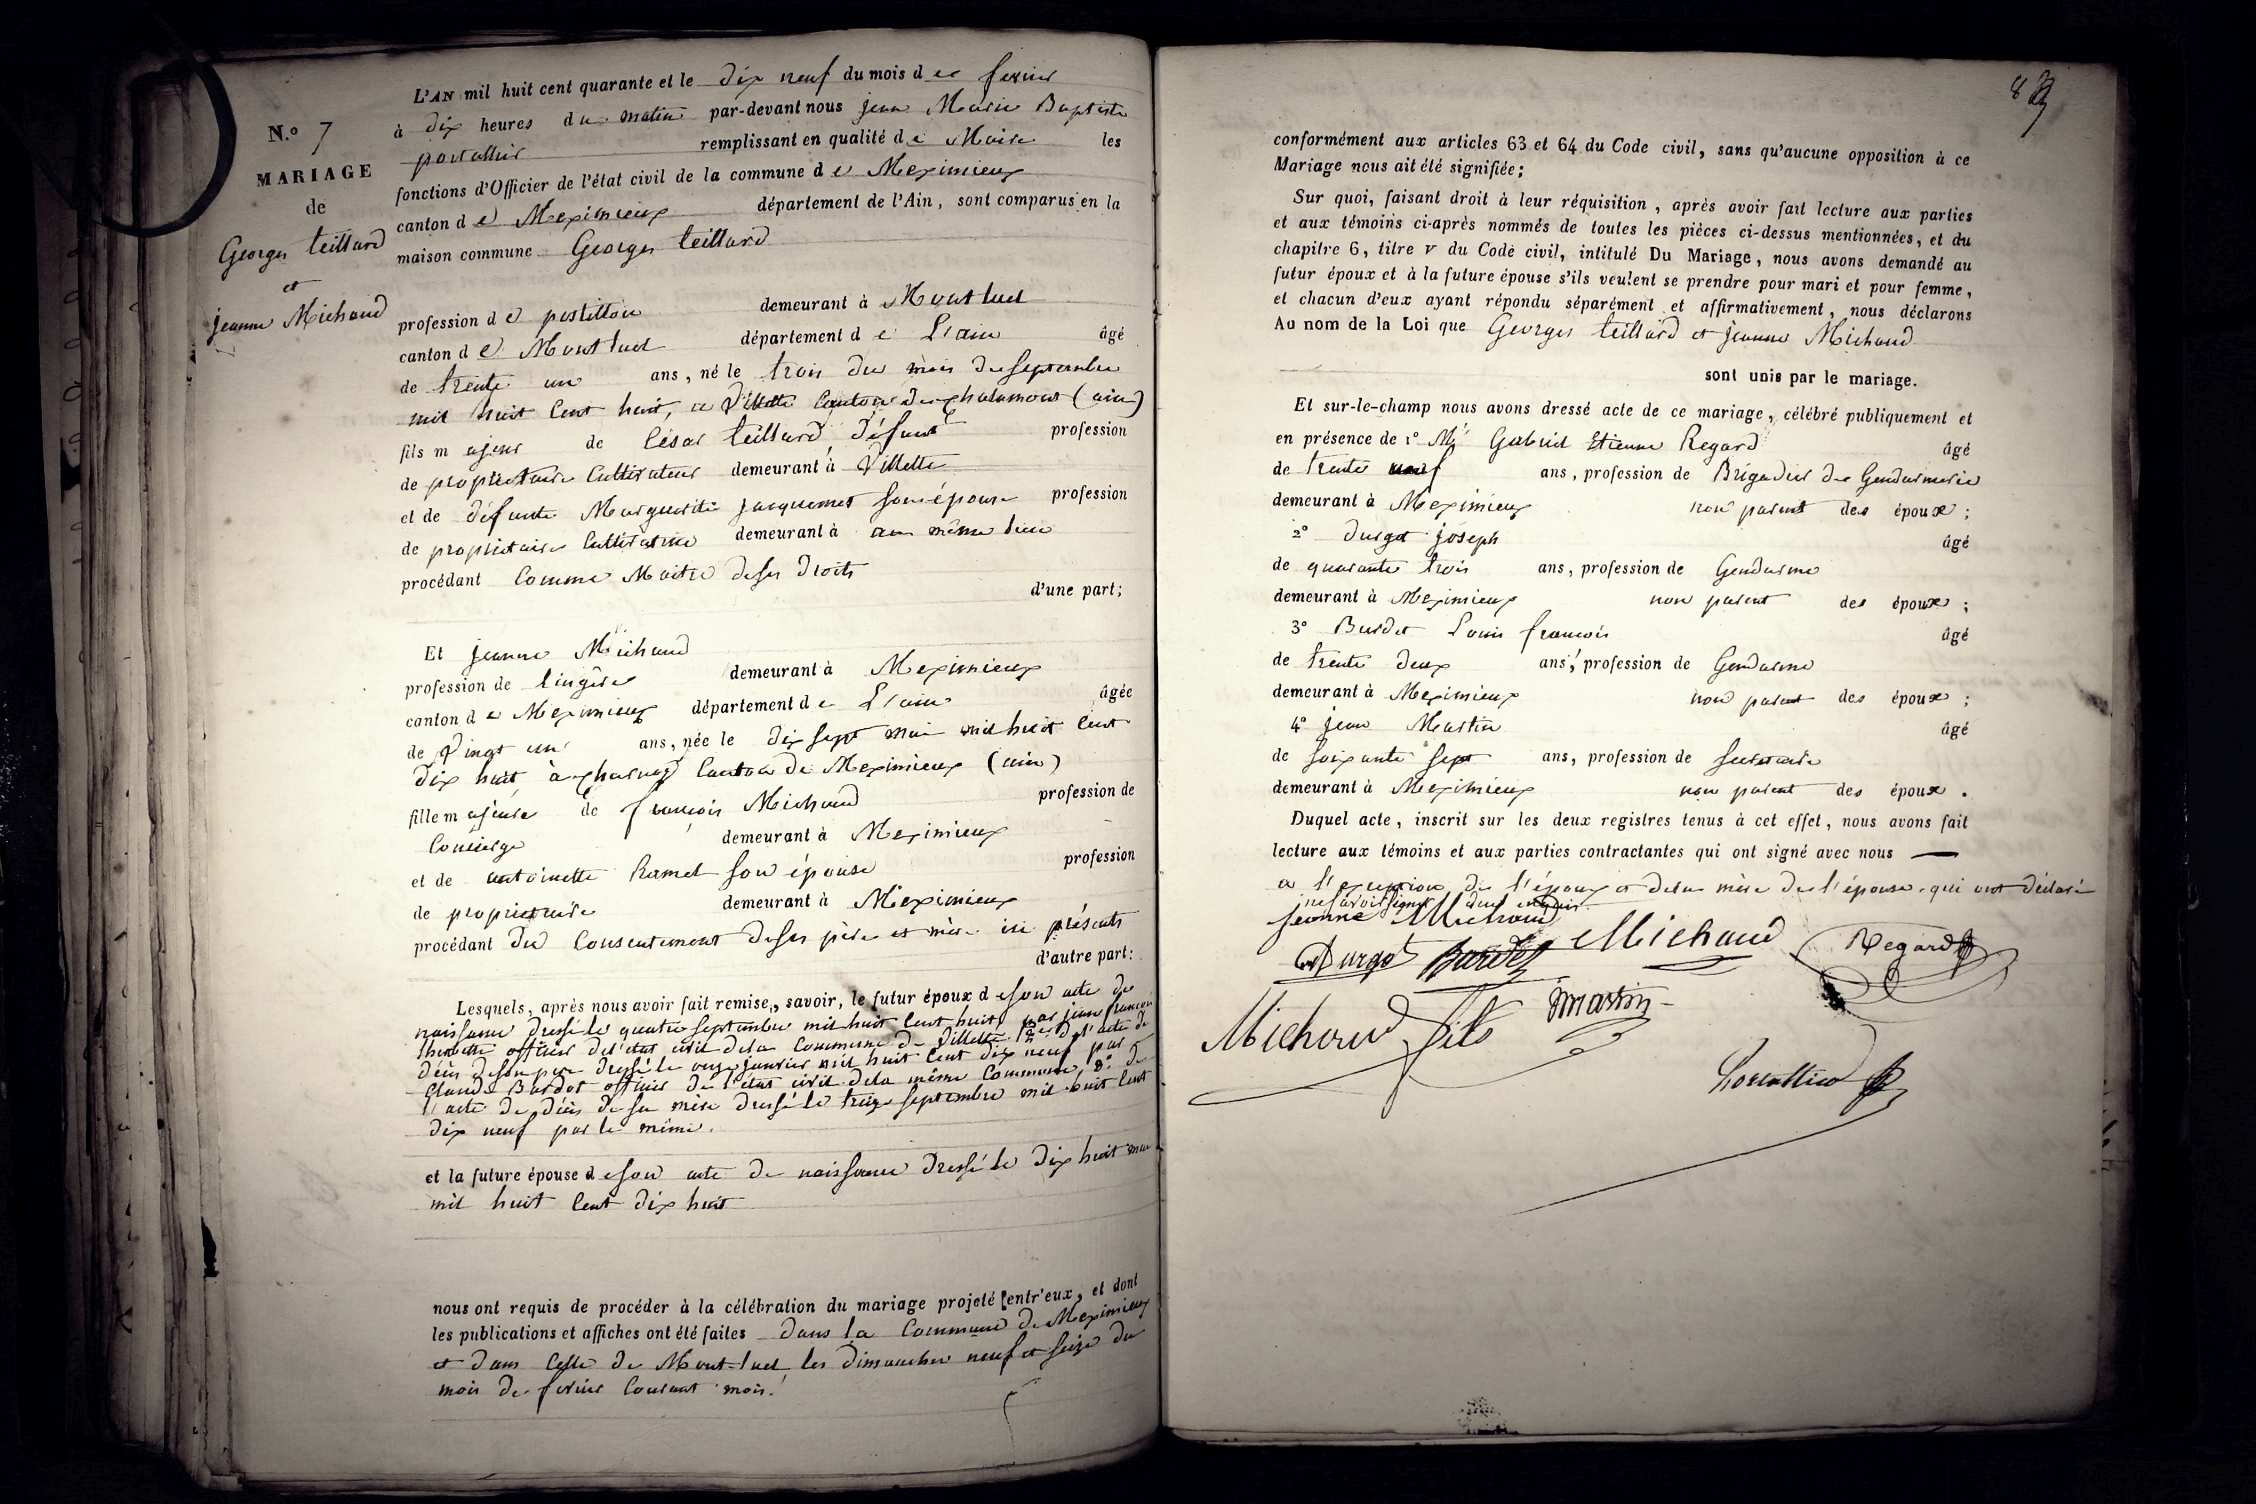 N.º 7
MARIAGE
de
Georges teillard
et
jeanne Michaud
L'AN mil huit cent quarante et le dix neuf du mois de fevrier
à dix heures du matin par-devant nous jean Marie Baptiste
remplissant en qualité de Maire les
fonctions d'Officier de l'état civil de la commune de Meximieux
canton de Meximieux département de l'Ain, sont comparus en la
maison commune Georges teillard
profession de postillon demeurant à Montluel
canton de Montluel département de L'ain âgé
de trente un ans, né le trois du mois de septembre
mil huit cent huit, a Villette canton de Chalamont (ain)
fils majeur de César teillard, défunt profession
de propriétaire cultivateur demeurant à Villette
et de défunte Marguerite jacquemet son épouse profession
de propriétaire cultivatrice demeurant à au même lieu
procédant comme Maitre de ses droits
d'une part;
Et jeanne Michaud
profession de lingère demeurant à Meximieux
canton de Meximieux département de L'ain âgée
de vingt un ans, née le dix sept mai mil huit cent
dix huit à Charnoz canton de Meximieux (ain)
fille majeure de françois Michaud profession de
concierge demeurant à Meximieux
et de antoinette Ramel son épouse profession
de propriétaire demeurant à Meximieux
procédant du consentement de ses père et mère ici présents
d'autre part:
Lesquels, après nous avoir fait remise, savoir, le futur époux de son acte de
naissance dressé le quatre septembre mil huit cent huit, par jean françois
officier de l'état civil de la commune de Villette, 2º de l'acte de
décès de son père dressé le onze janvier mil huit cent dix neuf par
Claude Bardot officier de l'état civil de la même commune, 3º de
l'acte de décès de sa mère dressé le treize septembre mil huit cent
dix neuf par le même.
et la future épouse de son acte de naissance dressé le dix huit mai
mil huit cent dix huit
nous ont requis de procéder à la célébration du mariage projeté entr'eux, et dont
les publications et affiches ont été faites dans la commune de Meximieux
et dans celle de Mont-luel les dimanches neuf et seize du
mois de fevrier courant mois.
conformément aux articles 63 et 64 du Code civil, sans qu'aucune opposition à ce
Mariage nous ait été signifiée;
Sur quoi, faisant droit à leur réquisition, après avoir fait lecture aux parties
et aux témoins ci-après nommés de toutes les pièces ci-dessus mentionnées, et du
chapitre 6, titre V du Code civil, intitulé Du Mariage, nous avons demandé au
futur époux et à la future épouse s'ils veulent se prendre pour mari et pour femme,
et chacun d'eux ayant répondu séparément et affirmativement, nous déclarons
Au nom de la Loi que Georges teillard et jeanne Michaud
sont unis par le mariage.
Et sur-le-champ nous avons dressé acte de ce mariage, célébré publiquement et
en présence de 1º Mr Gabriel Etienne Regard âgé
de trente neuf ans, profession de Brigadier de Gendarmerie
demeurant à Meximieux non parent des époux;
2º Durget joseph âgé
de quarante trois ans, profession de Gendarme
demeurant à Meximieux non parent des époux;
3º Burdet Louis françois âgé
de trente deux ans, profession de Gendarme
demeurant à Meximieux non parent des époux;
4º jean Martin âgé
de soixante sept ans, profession de secretaire
demeurant à Meximieux non parent des époux.
Duquel acte, inscrit sur les deux registres tenus à cet effet, nous avons fait
lecture aux témoins et aux parties contractantes qui ont signé avec nous
a l'exception de l'époux et de la mère de l'épouse qui ont déclaré
ne savoir signer
jeanne Michaud
Durget Burdet Michaud Regard
Michaud fils jmartin